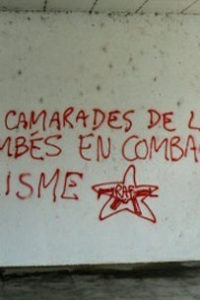 CAMARADES DE L
MBÉS EN COMBA
ISME RAF